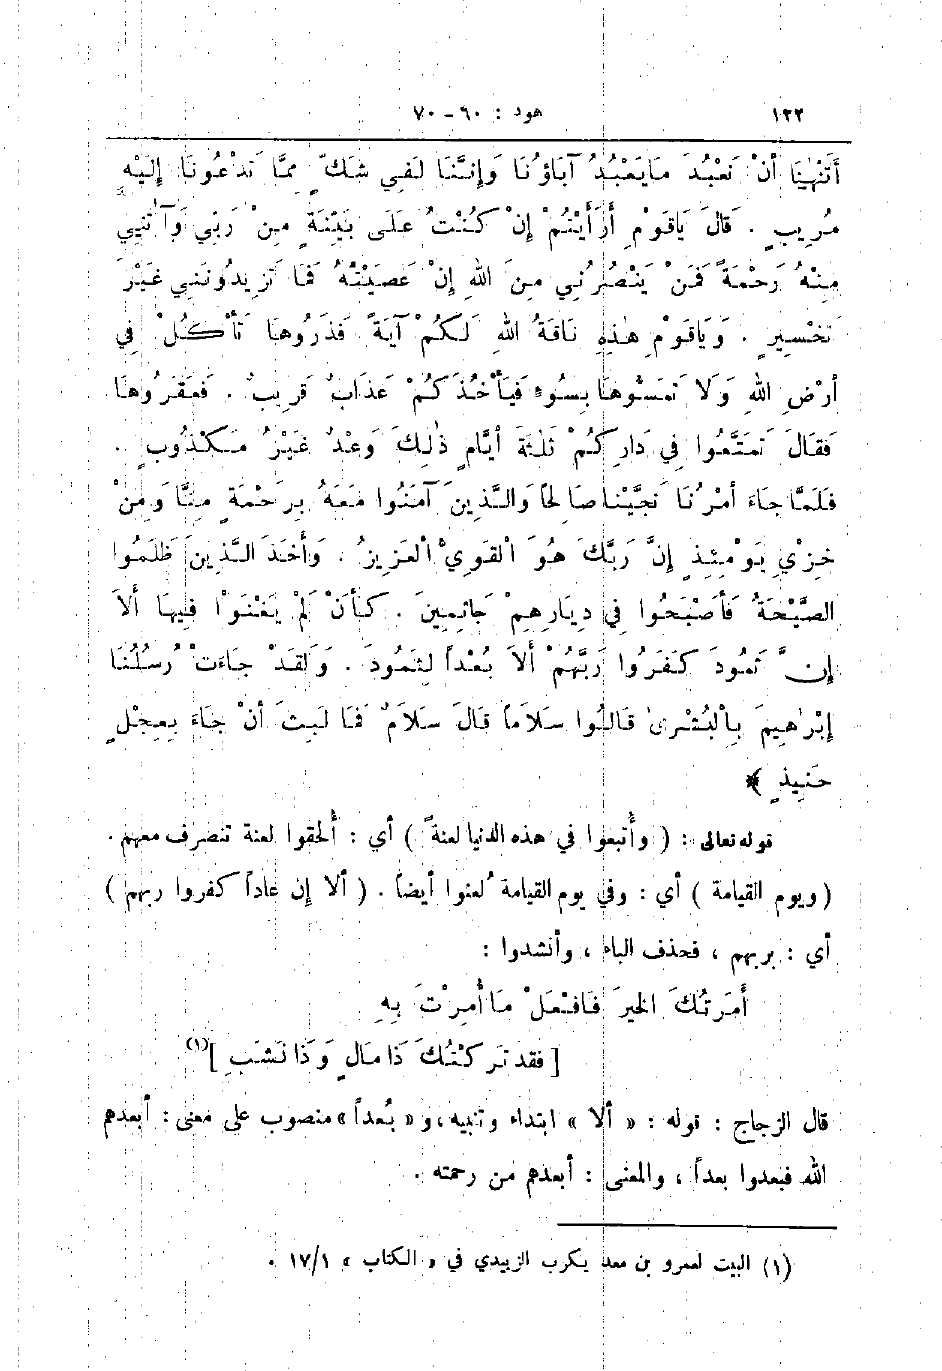 ١٢٢ هود : ٦٠ - ٧٠
أَتَنْهٰينَا أَنْ نَعْبُدَ مَا يَعْبُدُ آبَاؤُنَا وَإِنَّنَا لَفِي شَكٍّ مِمَّا تَدْعُونَا إِلَيْهِ
مُرِيبٍ . قَالَ يَاقَوْمِ أَرَأَيْتُمْ إِنْ كُنْتُ عَلَى بَيِّنَةٍ مِنْ رَبِّي وَآتٰنِيي
مِنْهُ رَحْمَةً فَمَنْ يَنْصُرُنِي مِنَ اللهِ إِنْ عَصَيْتُهُ فَمَا تَزِيدُونَنِي غَيْرَ
تَخْسِيرٍ . وَيَاقَوْمِ هٰذِهِ نَاقَةُ اللهِ لَكُمْ آيَةً فَذَرُوهَا تَأْكُلْ فِي
أَرْضِ اللهِ وَلَا تَمَسُّوهَا بِسُوءٍ فَيَأْخُذَكُمْ عَذَابٌ قَرِيبٌ . فَعَقَرُوهَا
فَقَالَ تَمَتَّعُوا فِي دَارِكُمْ ثَلٰثَةَ أَيَّامٍ ذٰلِكَ وَعْدٌ غَيْرُ مَكْذُوبٍ .
فَلَمَّا جَاءَ أَمْرُنَا نَجَّيْنَا صَالِحًا وَالَّذِينَ آمَنُوا مَعَهُ بِرَحْمَةٍ مِنَّا وَمِنْ
خِزْيِ يَوْمِئِذٍ إِنَّ رَبَّكَ هُوَ الْقَوِيُّ الْعَزِيزُ . وَأَخَذَ الَّذِينَ ظَلَمُوا
الصَّيْحَةُ فَأَصْبَحُوا فِي دِيَارِهِمْ جَاثِمِينَ . كَأَنْ لَمْ يَغْنَوْا فِيهَا أَلَا
إِنَّ ثَمُودَ كَفَرُوا رَبَّهُمْ أَلَا بُعْداً لِثَمُودَ . وَلَقَدْ جَاءَتْ رُسُلُنَا
إِبْرٰهِيمَ بِالْبُشْرىٰ قَالُوا سَلَاماً قَالَ سَلَامٌ فَمَا لَبِثَ أَنْ جَاءَ بِعِجْلٍ
حَنِيذٍ ﴾
قوله تعالى : ( وأُتبعوا في هذه الدنيا لعنةً ) أي : أُلحقوا لعنة تنصرف معهم .
( ويوم القيامة ) أي : وفي يوم القيامة لُعنوا أيضاً . ( ألا إن عاداً كفروا ربهم )
أي : بربهم ، فحذف الباء ، وأنشدوا :
أَمَرتُكَ الخيرَ فَافْعَلْ مَا أُمِرْتَ بِهِ
[ فقد تَرَكْتُكَ ذَا مَالٍ وَذَا نَشَبِ ](١)
قال الزجاج : قوله : « ألا » ابتداء وتنبيه ، و « بُعداً » منصوب على معنى : أبعدهم
الله فبعدوا بعداً ، والمعنى : أبعدهم من رحمته .
(١) البيت لعمرو بن معد يكرب الزبيدي في « الكتاب » ١٧/١ .